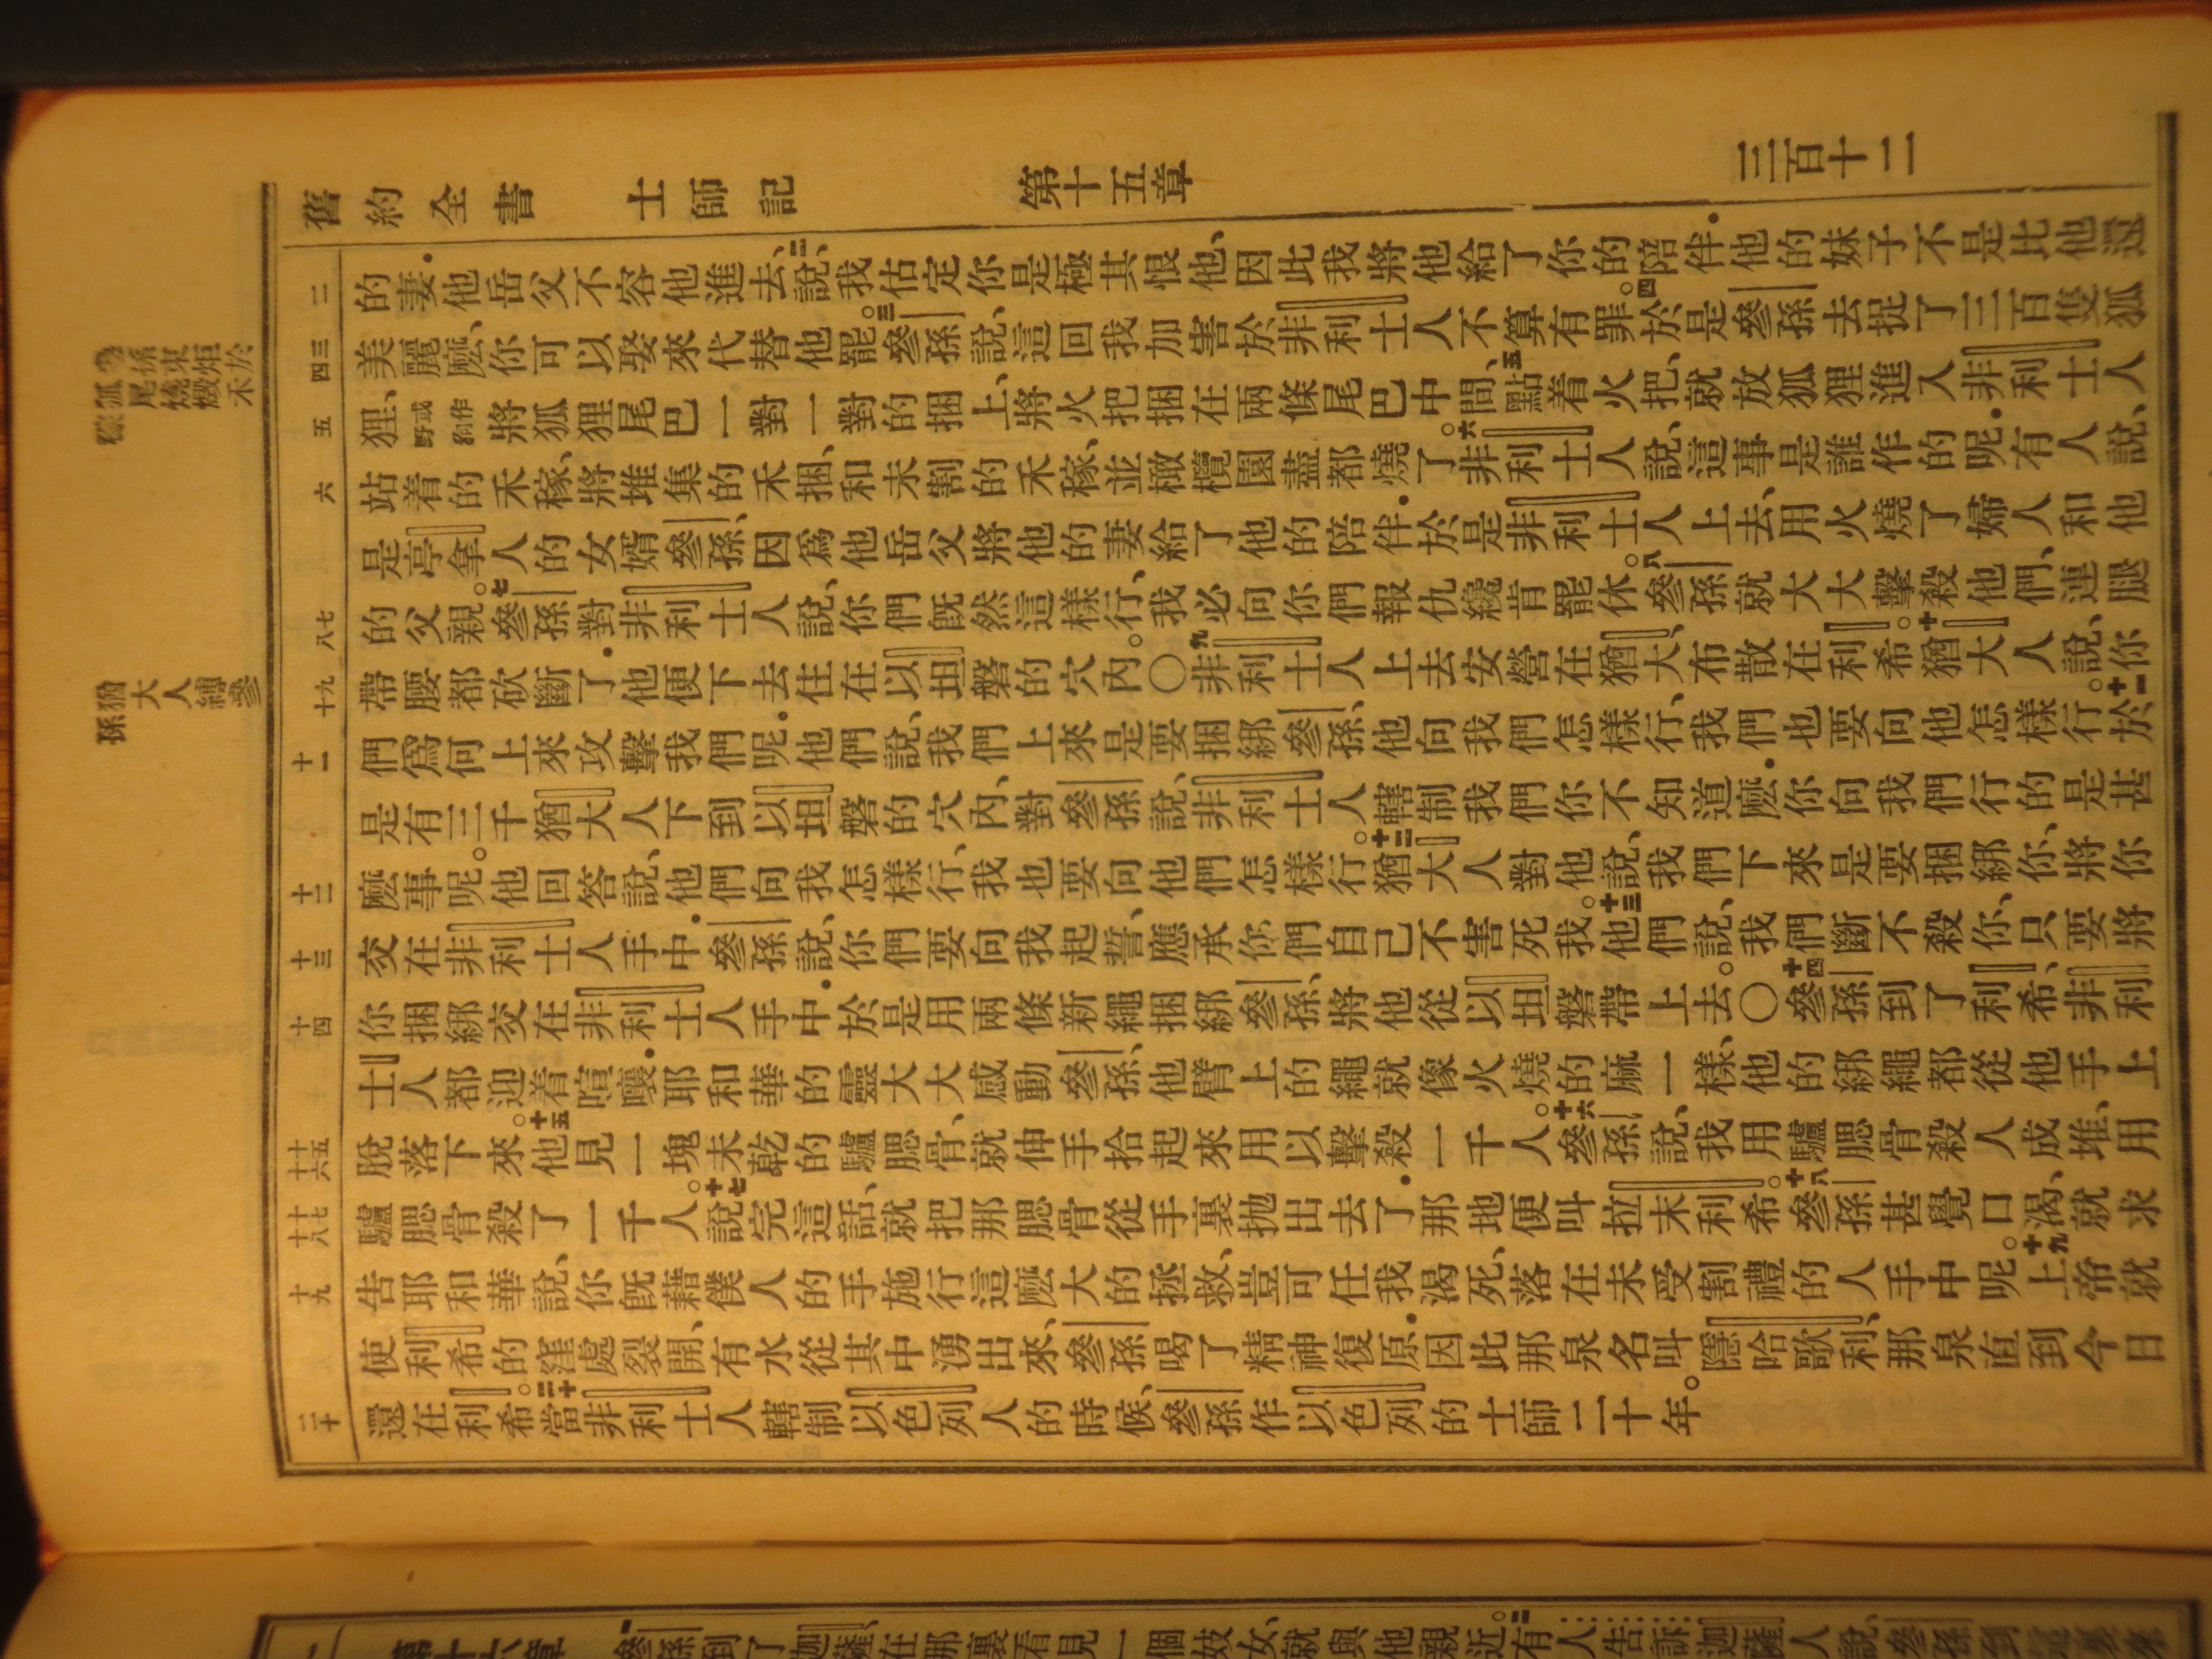 舊約全書 士師記 第十五章 三百十二
的妻．他岳父不容他進去、二說、我估定你是極其恨他、因此我將他給了你的陪伴．他的妹子不是比他還
美麗麼、你可以娶來代替他罷。三參孫說、這回我加害於非利士人不算有罪。四於是參孫去捉了三百隻狐
狸、野狗或作將狐狸尾巴一對一對的捆上、將火把捆在兩條尾巴中間、五點着火把、就放狐狸進入非利士人
站着的禾稼、將堆集的禾捆、和未割的禾稼、並橄欖園盡都燒了。六非利士人說、這事是誰作的呢．有人說、
是亭拿人的女婿參孫、因爲他岳父將他的妻給了他的陪伴．於是非利士人上去、用火燒了婦人和他
的父親。七參孫對非利士人說、你們旣然這樣行、我必向你們報仇纔肯罷休。八參孫就大大擊殺他們、連腿
帶腰都砍斷了．他便下去住在以坦磐的穴內。〇九非利士人上去安營在猶大、布散在利希。十猶大人說、你
們爲何上來攻擊我們呢．他們說、我們上來是要捆綁參孫、他向我們怎樣行、我們也要向他怎樣行。十一於
是有三千猶大人下到以坦磐的穴內、對參孫說、非利士人轄制我們你不知道麼．你向我們行的是甚
麼事呢。他回答說、他們向我怎樣行、我也要向他們怎樣行。十二猶大人對他說、我們下來是要捆綁你、將你
交在非利士人手中．參孫說、你們要向我起誓、應承你們自己不害死我。十三他們說、我們斷不殺你、只要將
你捆綁交在非利士人手中．於是用兩條新繩捆綁參孫、將他從以坦磐帶上去。〇十四參孫到了利希、非利
士人都迎着喧嚷．耶和華的靈大大感動參孫、他臂上的繩就像火燒的麻一樣、他的綁繩都從他手上
脫落下來。十五他見一塊未乾的驢腮骨、就伸手拾起來用以擊殺一千人。十六參孫說、我用驢腮骨殺人成堆、用
驢腮骨殺了一千人。十七說完這話、就把那腮骨從手裏拋出去了．那地便叫拉末利希。十八參孫甚覺口渴、就求
告耶和華說、你旣藉僕人的手施行這麼大的拯救、豈可任我渴死、落在未受割禮的人手中呢。十九上帝就
使利希的窪處裂開、有水從其中湧出來、參孫喝了精神復原．因此那泉名叫隱哈歌利、那泉直到今日
還在利希。二十當非利士人轄制以色列人的時候、參孫作以色列的士師二十年。
二
三
四
五
六
七
八
九
十
十一
十二
十三
十四
十五
十六
十七
十八
十九
二十
猶大人縛參孫
第十六章 一參孫到了迦薩、在那裏看見一個妓女、就與他親近。二有人告訴迦薩人說、參孫到